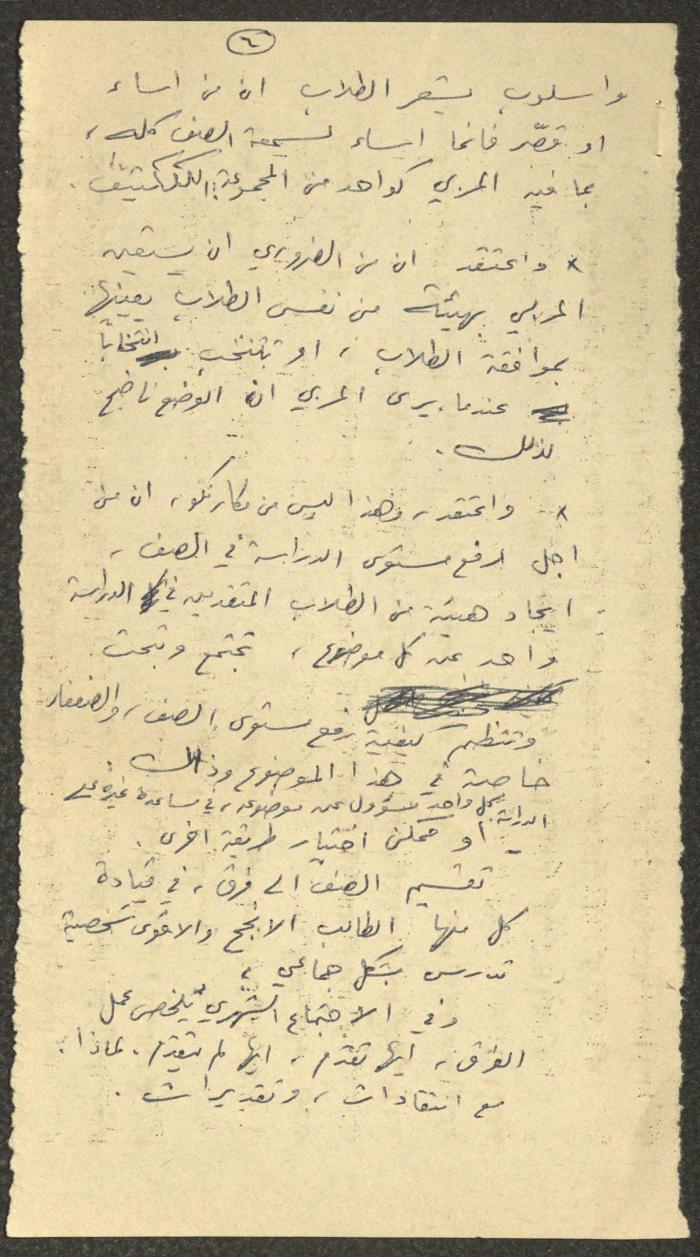 ٤
واسلوب يشعر الطلاب ان من اساء
او قصّر فانما اساء لسمعة الصف كله،
بما فيه المربي كواحد من المجموعة
* واعتقد ان من الضروري ان يستعين
المربي بهيئة من نفس الطلاب يعينها
بموافقة الطلاب، او تنتخب انتخاباً
عندما يرى المربي ان الوضع ناضج
لذلك.
* واعتقد، وهذا ليس من مكارنكو، ان من
اجل رفع مستوى الدراسة في الصف،
ايجاد هيئة من الطلاب المتقدمين في الدراسة
واحد عن كل موضوع، تجتمع وتبحث
وتنظم كيفية رفع مستوى الصف، والضعفاء
خاصة في هذا الموضوع وذاك.
يعمل واحد مسؤول عن موضوعه، في مساعدة غيره على
الدراسة.
او ممكن اختيار طريقة اخرى.
تقسيم الصف الى فرق، في قيادة
كل منها الطالب الانجح والاقوى شخصية
تدرس بشكل جماعي،
وفي الاجتماع الشهري يلخص عمل
الفرق، ايها تقدم، ايها لم يتقدم. لماذا.
مع انتقادات، وتقديرات.